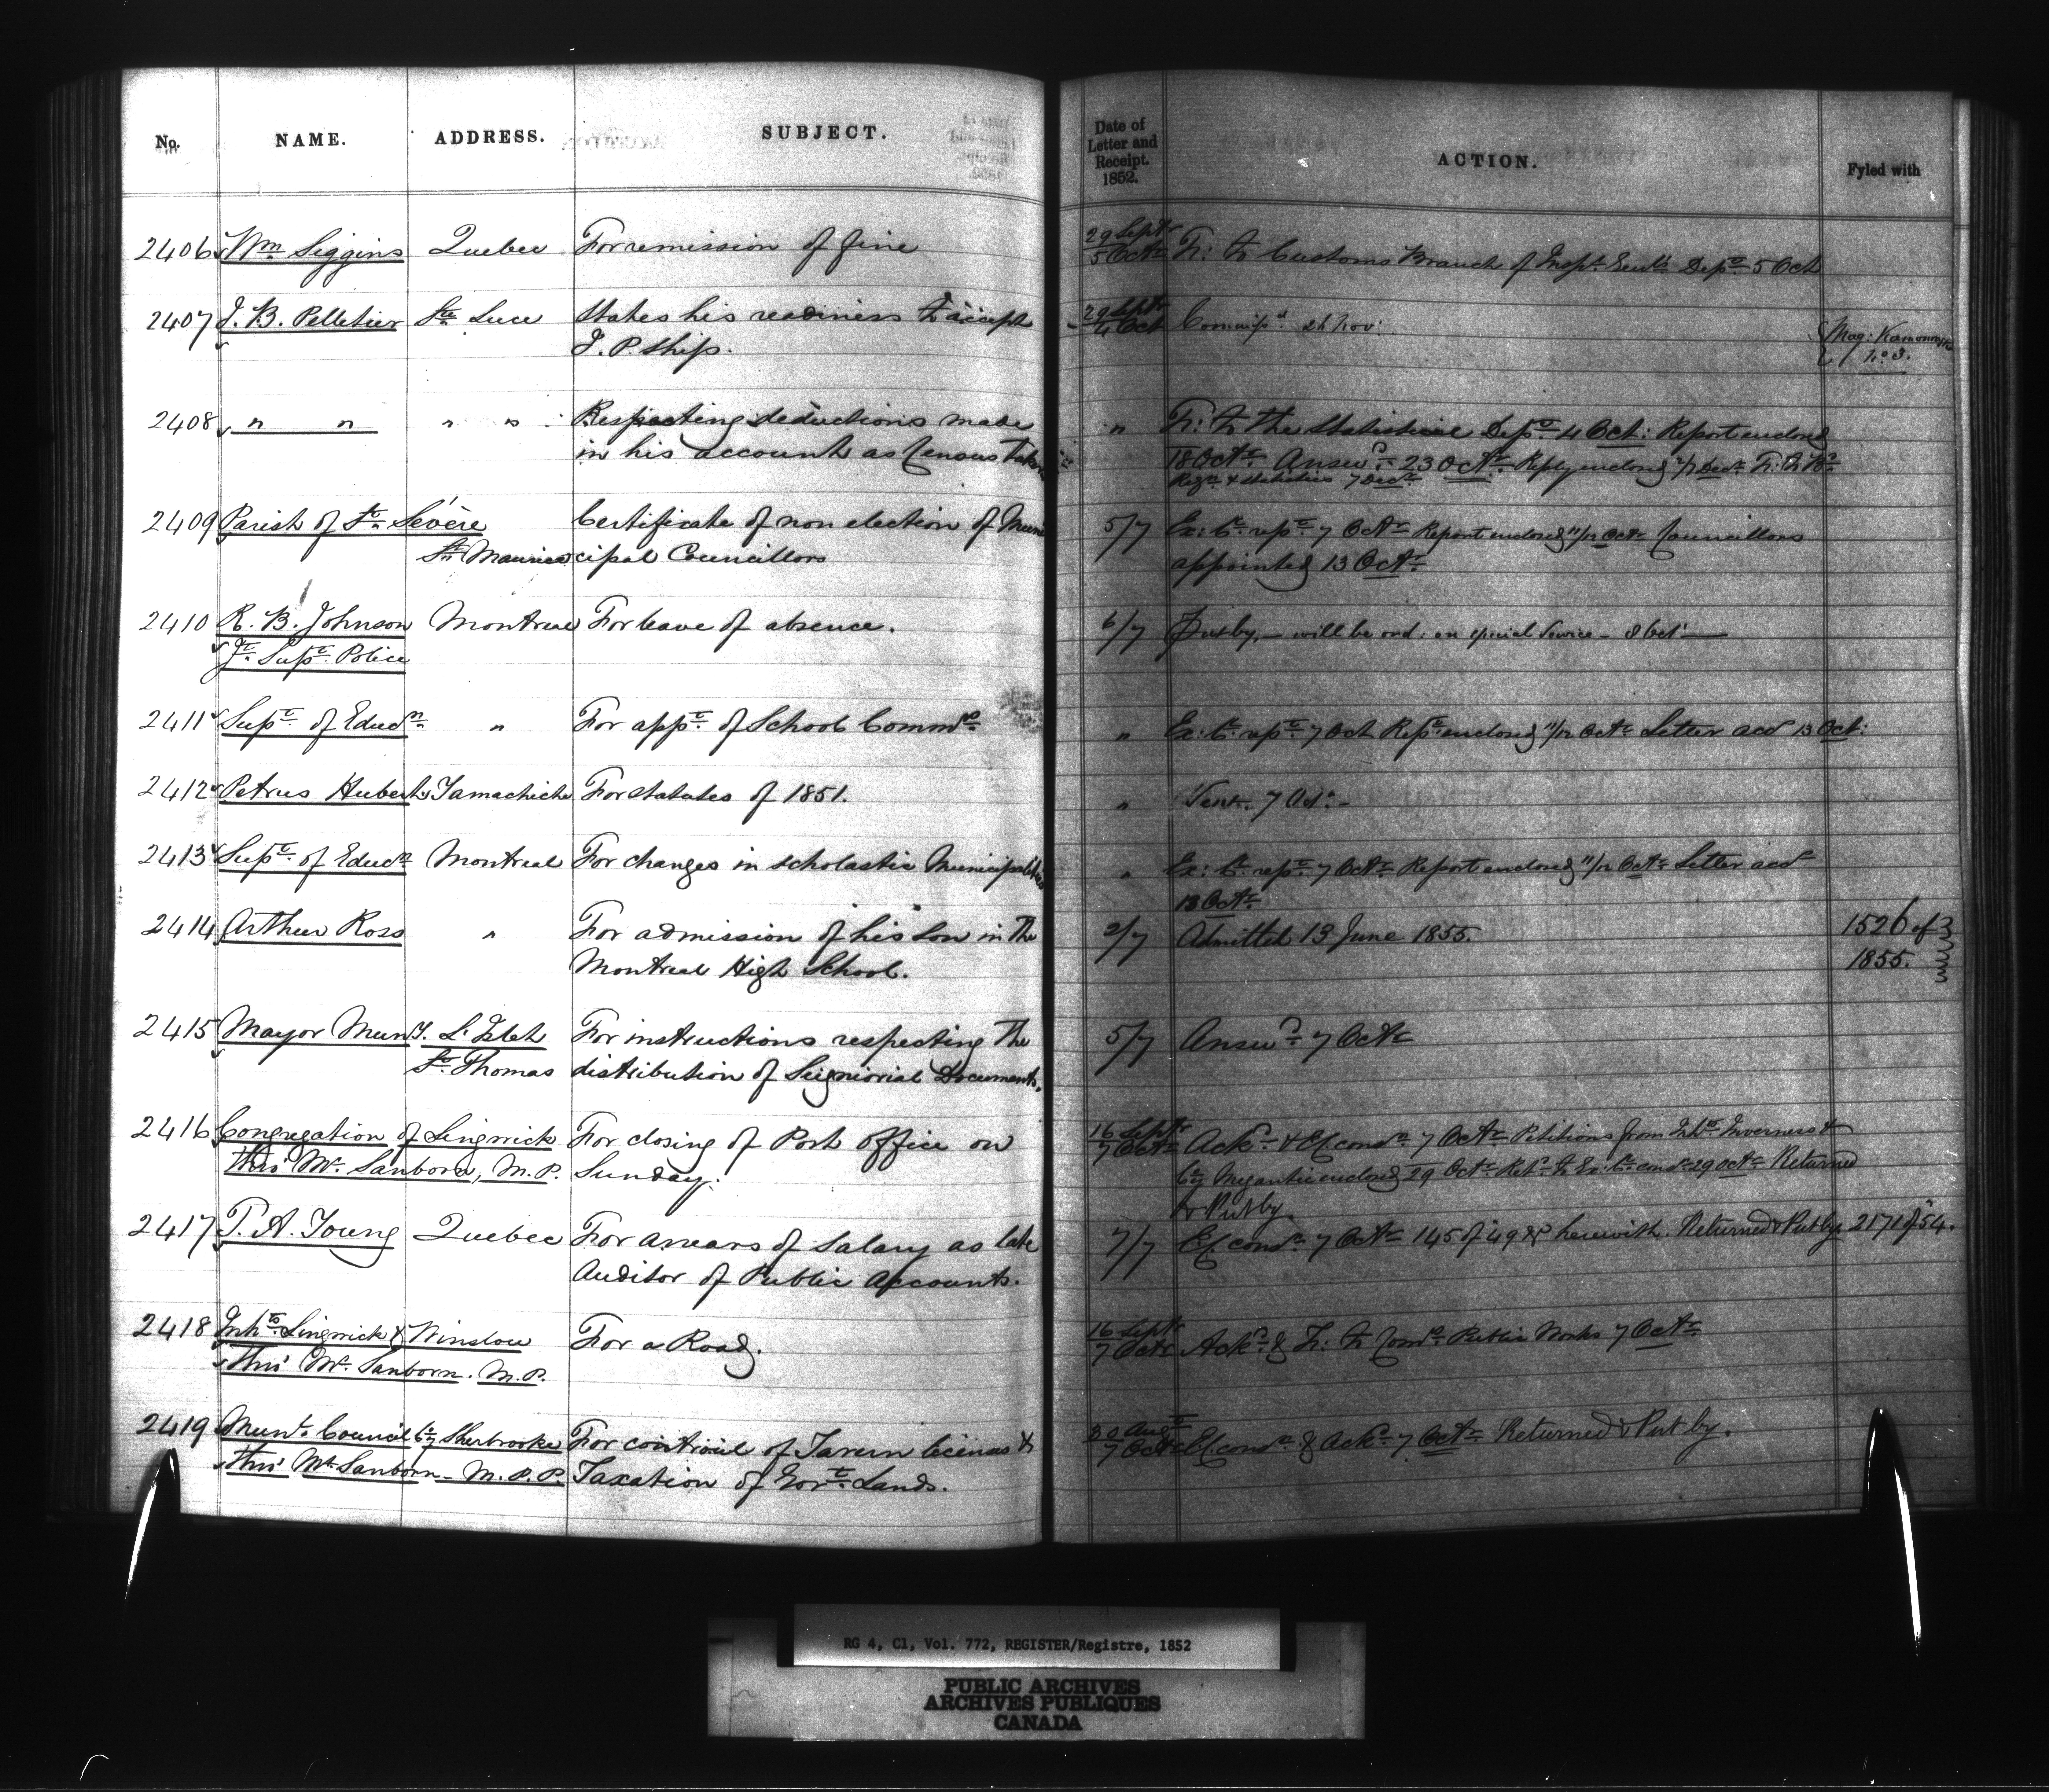 No. NAME. ADDRESS. SUBJECT. Date of Letter and Receipt. 1852. ACTION. Fyled with
2406 Wm Siggins Quebec For remission of fine 29 Septr 5 Octr Tr: to Customs Branch of Inspr Genl's Depmt 5 Oct
2407 J. B. Pelletier Ste Luce States his readiness to accept 29 Septr 4 Oct Commissd 26 Nov:
J. P. ship. Mag: Kamouraska
No 3.
2408 " " " " Respecting deductions made " Tr: to the Statistical Dept 4 Oct: Report enclosed
in his account as Census Taker 18 Octr Answd 23 Octr Reply enclosed 2/7 Decr Tr: to Bd
Regn & Statistics 7 Decr
2409 Parish of St Sévère Certificate of non election of Muni 5/7 Ex: C. rept 7 Octr Report enclosed 11/12 Octr Councillors
St Maurice cipal Councillors appointed 13 Octr
2410 R. B. Johnson Montreal For leave of absence. 6/7 Putby, — will be ord: on special service — 8 Oct
Jt Supt Police
2411 Supt of Educn " For appt of School Commrs " Ex: C. rept 7 Oct Rept enclosed 11/12 Octr Letter acd 13 Oct:
2412 Petrus Hubert Yamachiche For Statutes of 1851. " Sent 7 Octr —
2413 Supt of Educn Montreal For changes in scholastic Municipalities " Ex: C. rept 7 Octr Report enclosed 11/12 Octr Letter acd
13 Octr
2414 Arthur Ross " For admission of his son in the 2/7 Admitted 13 June 1855. 1526 of
Montreal High School. 1855.
2415 Mayor Muny. L'Islet For instructions respecting the 5/7 Answd 7 Octr
St Thomas distribution of Seigniorial Documents.
2416 Congregation of Lingwick For closing of Post office on 16 Septr 7 Octr Ackd & Ex cond 7 Octr Petitions from Inhts Inverness &
thro' Mr Sanborn, M.P. Sunday. Co Megantic enclosed 29 Octr Refd to Ex: C. cond 29 Octr Returned
& Putby
2417 T. A. Young Quebec For arrears of Salary as late 7/7 Ex cond 7 Octr 145 of '49 &c herewith. Returned & Putby 2171 of 54.
Auditor of Public Accounts.
2418 Inhts Lingwick & Winslow For a Road. 16 Septr 7 Octr Ackd & Tr: to Comrs Public Works 7 Octr
thro' Mr Sanborn. M.P.
2419 Munl Council Co Sherbrooke For controul of Tavern licenses & 20 Augt 7 Octr Ex cond & Ackd 7 Octr Returned & Put by.
thro' Mr Sanborn — M.P.P. Taxation of Govt Lands.
RG 4, C1, Vol. 772, REGISTER/Registre, 1852
PUBLIC ARCHIVES
ARCHIVES PUBLIQUES
CANADA